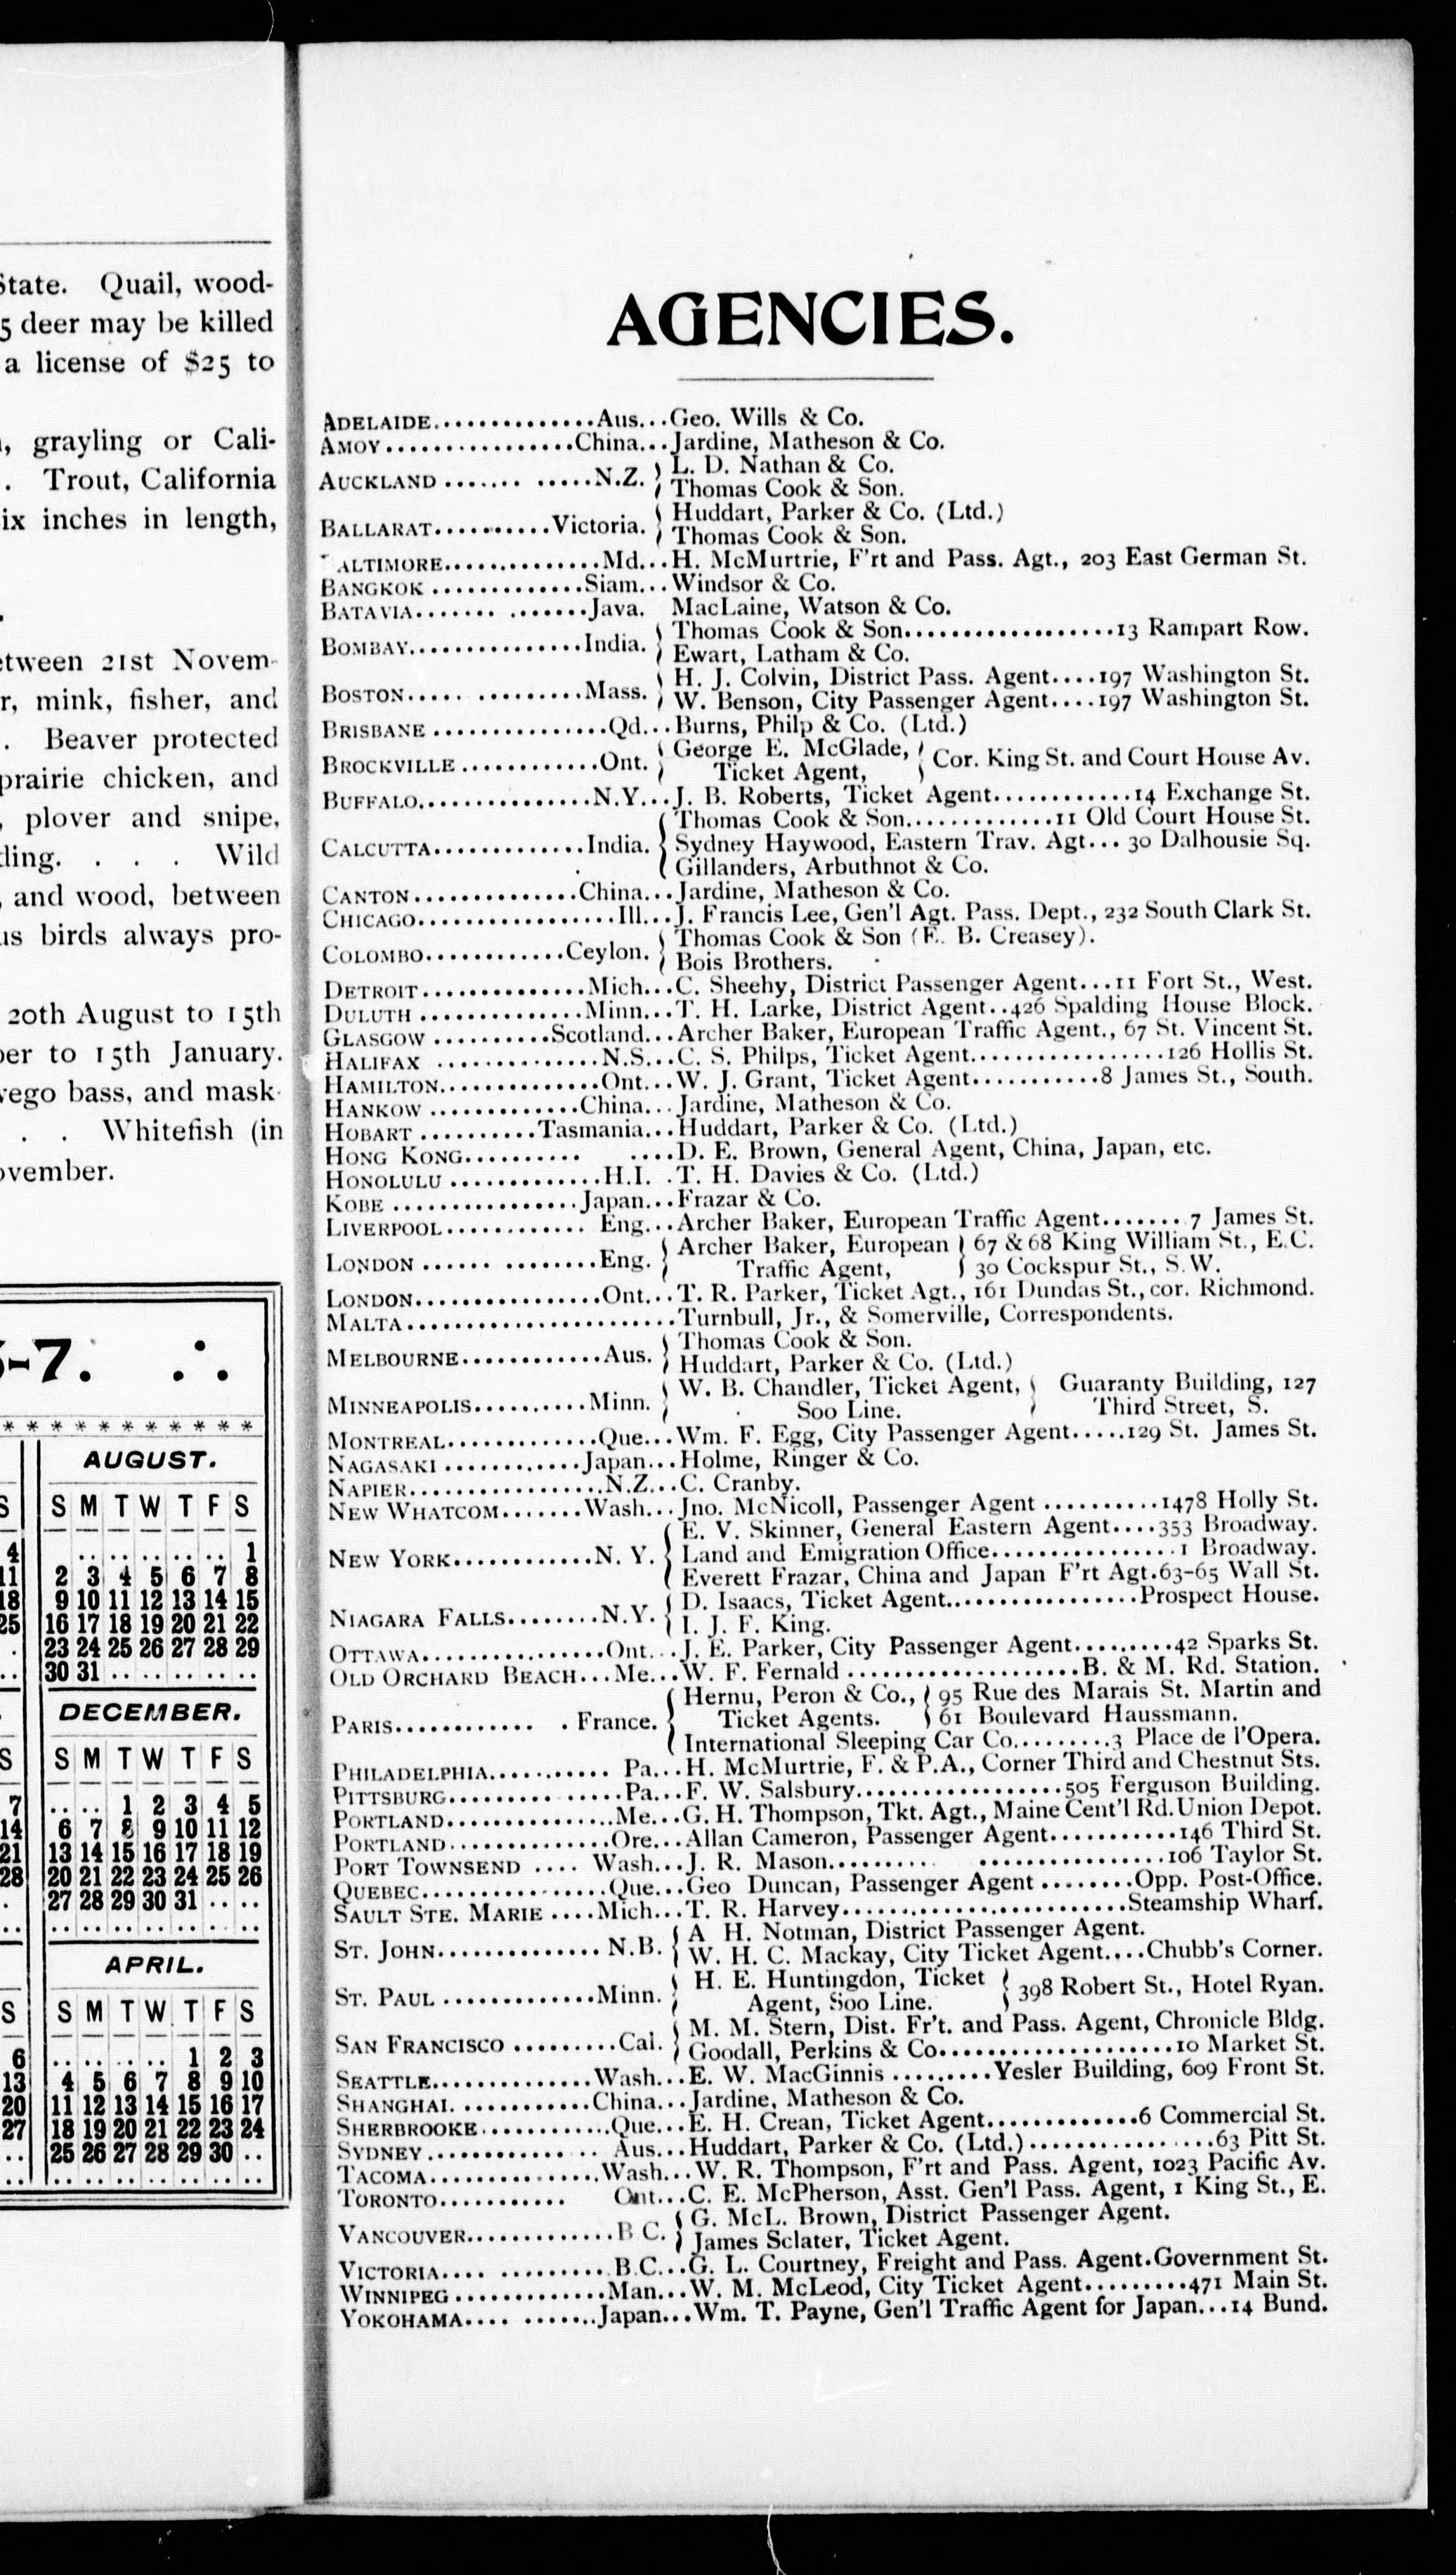 State. Quail, wood-
5 deer may be killed
a license of $25 to
, grayling or Cali-
. Trout, California
ix inches in length,
.
etween 21st Novem-
r, mink, fisher, and
. Beaver protected
prairie chicken, and
, plover and snipe,
ding. . . . Wild
, and wood, between
us birds always pro-
20th August to 15th
ber to 15th January.
vego bass, and mask-
. . Whitefish (in
ovember.
-7. ∴
* * * * * * * * * * *
S
4
11
18
25
AUGUST.
S M T W T F S
.. .. .. .. .. .. 1
2 3 4 5 6 7 8
9 10 11 12 13 14 15
16 17 18 19 20 21 22
23 24 25 26 27 28 29
30 31 .. .. .. .. ..
S
7
14
21
28
DECEMBER.
S M T W T F S
.. .. 1 2 3 4 5
6 7 8 9 10 11 12
13 14 15 16 17 18 19
20 21 22 23 24 25 26
27 28 29 30 31 .. ..
.. .. .. .. .. .. ..
S
6
13
20
27
APRIL.
S M T W T F S
.. .. .. .. 1 2 3
4 5 6 7 8 9 10
11 12 13 14 15 16 17
18 19 20 21 22 23 24
25 26 27 28 29 30 ..
.. .. .. .. .. .. ..
AGENCIES.
ADELAIDE..............Aus...Geo. Wills & Co.
AMOY.................China...Jardine, Matheson & Co.
AUCKLAND ............N.Z. { L. D. Nathan & Co.
Thomas Cook & Son.
BALLARAT...........Victoria. { Huddart, Parker & Co. (Ltd.)
Thomas Cook & Son.
ALTIMORE..............Md...H. McMurtrie, F'rt and Pass. Agt., 203 East German St.
BANGKOK .............Siam...Windsor & Co.
BATAVIA....... .......Java. MacLaine, Watson & Co.
BOMBAY...............India. { Thomas Cook & Son...................13 Rampart Row.
Ewart, Latham & Co.
BOSTON..... .........Mass. { H. J. Colvin, District Pass. Agent....197 Washington St.
W. Benson, City Passenger Agent....197 Washington St.
BRISBANE ...............Qd...Burns, Philp & Co. (Ltd.)
BROCKVILLE ............Ont. { George E. McGlade, } Cor. King St. and Court House Av.
Ticket Agent,
BUFFALO...............N.Y...J. B. Roberts, Ticket Agent............14 Exchange St.
CALCUTTA.............India. { Thomas Cook & Son.............11 Old Court House St.
Sydney Haywood, Eastern Trav. Agt... 30 Dalhousie Sq.
Gillanders, Arbuthnot & Co.
CANTON..............China...Jardine, Matheson & Co.
CHICAGO..................Ill...J. Francis Lee, Gen'l Agt. Pass. Dept., 232 South Clark St.
COLOMBO............Ceylon. { Thomas Cook & Son (E. B. Creasey).
Bois Brothers.
DETROIT..............Mich...C. Sheehy, District Passenger Agent...11 Fort St., West.
DULUTH ..............Minn...T. H. Larke, District Agent..426 Spalding House Block.
GLASGOW ..........Scotland...Archer Baker, European Traffic Agent., 67 St. Vincent St.
HALIFAX ..............N.S...C. S. Philps, Ticket Agent.................126 Hollis St.
HAMILTON..............Ont...W. J. Grant, Ticket Agent...........8 James St., South.
HANKOW .............China...Jardine, Matheson & Co.
HOBART ..........Tasmania...Huddart, Parker & Co. (Ltd.)
HONG KONG.......... ....D. E. Brown, General Agent, China, Japan, etc.
HONOLULU .............H.I. .T. H. Davies & Co. (Ltd.)
KOBE ................Japan...Frazar & Co.
LIVERPOOL............ Eng...Archer Baker, European Traffic Agent.......7 James St.
LONDON ...... ........Eng. { Archer Baker, European } 67 & 68 King William St., E.C.
Traffic Agent, } 30 Cockspur St., S.W.
LONDON.................Ont...T. R. Parker, Ticket Agt., 161 Dundas St., cor. Richmond.
MALTA........................Turnbull, Jr., & Somerville, Correspondents.
MELBOURNE............Aus. { Thomas Cook & Son.
Huddart, Parker & Co. (Ltd.)
MINNEAPOLIS..........Minn. { W. B. Chandler, Ticket Agent, } Guaranty Building, 127
Soo Line. } Third Street, S.
MONTREAL.............Que...Wm. F. Egg, City Passenger Agent.....129 St. James St.
NAGASAKI ............Japan...Holme, Ringer & Co.
NAPIER.................N.Z...C. Cranby.
NEW WHATCOM.......Wash...Jno. McNicoll, Passenger Agent ..........1478 Holly St.
NEW YORK............N. Y. { E. V. Skinner, General Eastern Agent....353 Broadway.
Land and Emigration Office.................1 Broadway.
Everett Frazar, China and Japan F'rt Agt.63-65 Wall St.
NIAGARA FALLS........N.Y. { D. Isaacs, Ticket Agent.................Prospect House.
I. J. F. King.
OTTAWA................Ont...J. E. Parker, City Passenger Agent.........42 Sparks St.
OLD ORCHARD BEACH...Me...W. F. Fernald .....................B. & M. Rd. Station.
PARIS............. . France. { Hernu, Peron & Co., } 95 Rue des Marais St. Martin and
Ticket Agents. } 61 Boulevard Haussmann.
International Sleeping Car Co.........3 Place de l'Opera.
PHILADELPHIA........... Pa...H. McMurtrie, F. & P.A., Corner Third and Chestnut Sts.
PITTSBURG......... .....Pa...F. W. Salsbury..................505 Ferguson Building.
PORTLAND...............Me...G. H. Thompson, Tkt. Agt., Maine Cent'l Rd. Union Depot.
PORTLAND...............Ore...Allan Cameron, Passenger Agent...........146 Third St.
PORT TOWNSEND .... Wash...J. R. Mason......... ................106 Taylor St.
QUEBEC.................Que...Geo Duncan, Passenger Agent ........Opp. Post-Office.
SAULT STE. MARIE ....Mich...T. R. Harvey..........................Steamship Wharf.
ST. JOHN............... N.B. { A H. Notman, District Passenger Agent.
W. H. C. Mackay, City Ticket Agent....Chubb's Corner.
ST. PAUL .............Minn. { H. E. Huntingdon, Ticket } 398 Robert St., Hotel Ryan.
Agent, Soo Line.
SAN FRANCISCO .........Cal. { M. M. Stern, Dist. Fr't. and Pass. Agent, Chronicle Bldg.
Goodall, Perkins & Co.....................10 Market St.
SEATTLE...............Wash...E. W. MacGinnis .........Yesler Building, 609 Front St.
SHANGHAI. ...........China...Jardine, Matheson & Co.
SHERBROOKE............Que...E. H. Crean, Ticket Agent.............6 Commercial St.
SYDNEY............. .. Aus...Huddart, Parker & Co. (Ltd.)..................63 Pitt St.
TACOMA...............Wash...W. R. Thompson, F'rt and Pass. Agent, 1023 Pacific Av.
TORONTO........... Ont...C. E. McPherson, Asst. Gen'l Pass. Agent, 1 King St., E.
VANCOUVER.............B C. { G. McL. Brown, District Passenger Agent.
James Sclater, Ticket Agent.
VICTORIA.... .........B.C...G. L. Courtney, Freight and Pass. Agent.Government St.
WINNIPEG .............Man...W. M. McLeod, City Ticket Agent.........471 Main St.
YOKOHAMA.... .......Japan...Wm. T. Payne, Gen'l Traffic Agent for Japan...14 Bund.